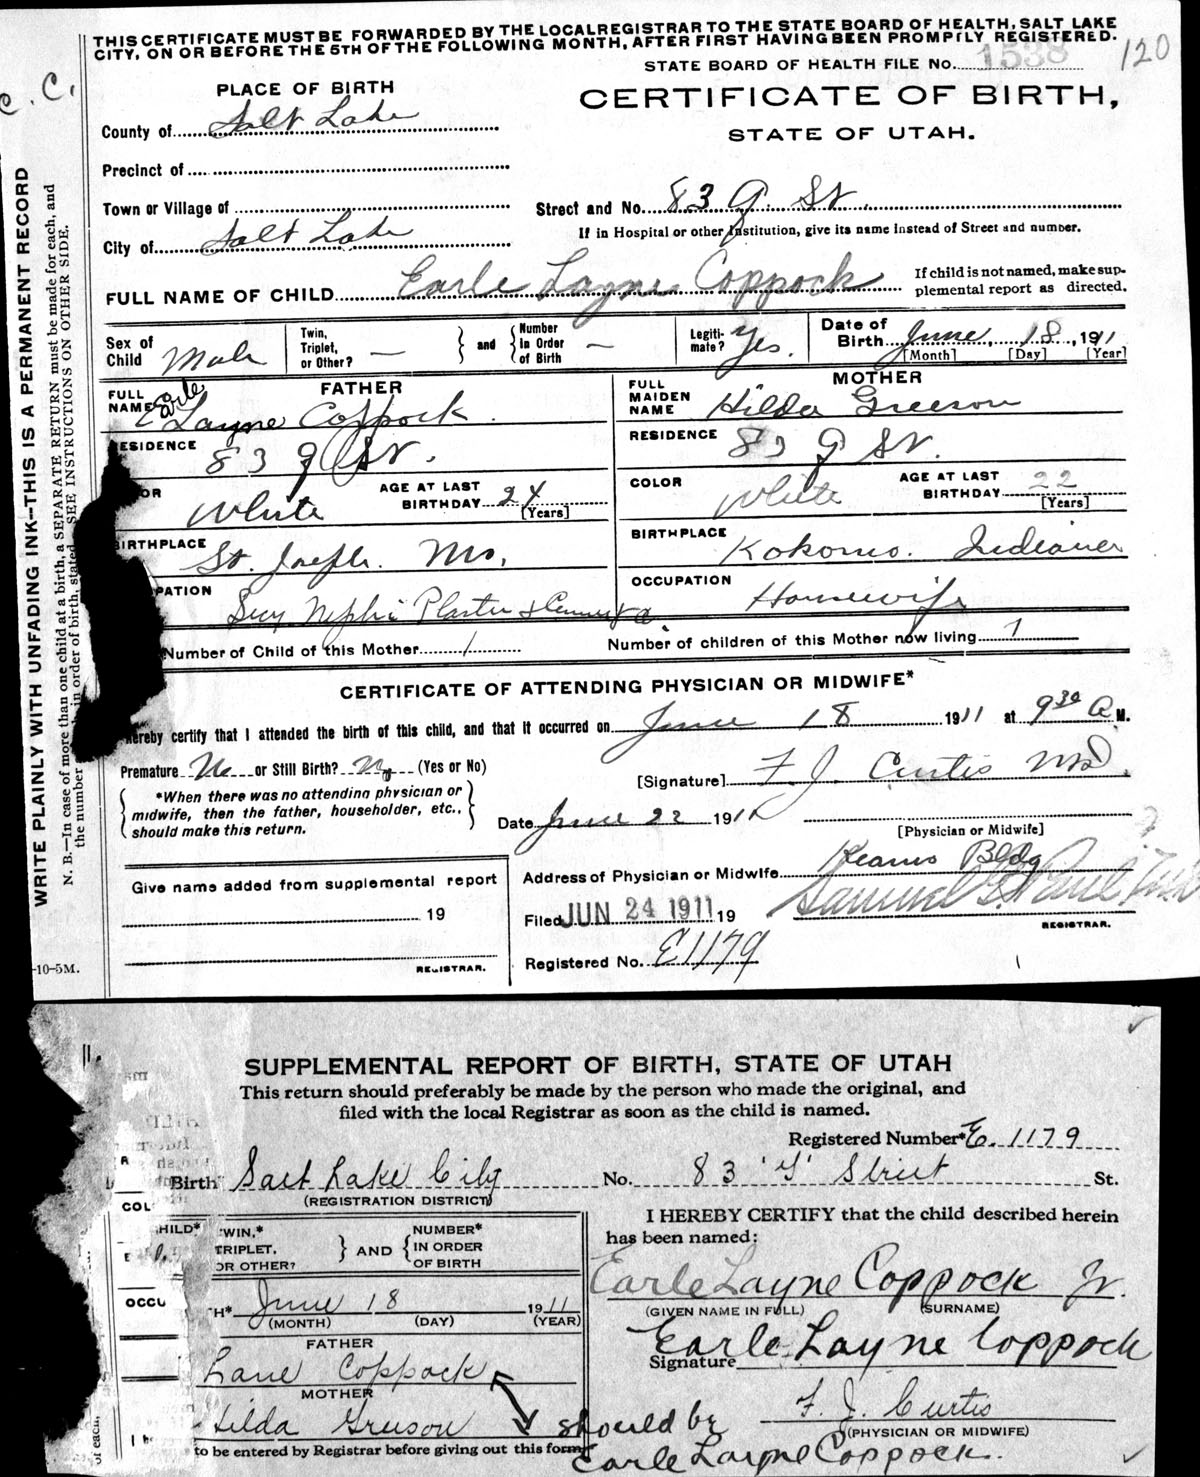 THIS CERTIFICATE MUST BE FORWARDED BY THE LOCAL REGISTRAR TO THE STATE BOARD OF HEALTH, SALT LAKE
CITY, ON OR BEFORE THE 5TH OF THE FOLLOWING MONTH, AFTER FIRST HAVING BEEN PROMPTLY REGISTERED.
STATE BOARD OF HEALTH FILE No. 1538
120
C. C.
PLACE OF BIRTH
CERTIFICATE OF BIRTH,
STATE OF UTAH.
County of Salt Lake
Precinct of
Town or Village of
Street and No. 83 G St.
City of Salt Lake
If in Hospital or other Institution, give its name instead of Street and number.
FULL NAME OF CHILD Earle Layne Coppock
If child is not named, make sup-
plemental report as directed.
Sex of Child Male
Twin, Triplet, or Other? —
and Number in Order of Birth —
Legiti-mate? Yes.
Date of Birth June 18, 1911
[Month] [Day] [Year]
FATHER
FULL NAME Earle Layne Coppock.
RESIDENCE 83 G St.
OR White
AGE AT LAST BIRTHDAY 24
[Years]
BIRTHPLACE St. Joseph. Mo.
PATION Secy Nephi Plaster &
MOTHER
FULL MAIDEN NAME Hilda Greeson
RESIDENCE 83 G St.
COLOR White
AGE AT LAST BIRTHDAY 22
[Years]
BIRTHPLACE Kokomo. Indiana
OCCUPATION Housewife
Number of Child of this Mother 1
Number of children of this Mother now living 1
CERTIFICATE OF ATTENDING PHYSICIAN OR MIDWIFE*
hereby certify that I attended the birth of this child, and that it occurred on June 18 1911 at 9 30 A M.
Premature No or Still Birth? No (Yes or No)
[Signature] F J. Curtis MD.
*When there was no attending physician or
midwife, then the father, householder, etc.,
should make this return.
Date June 22 1911
[Physician or Midwife]
Give name added from supplemental report
19
REGISTRAR.
Address of Physician or Midwife Kearns Bldg
Filed JUN 24 1911 19
Samuel G. Paul
REGISTRAR.
Registered No. E1179
WRITE PLAINLY WITH UNFADING INK—THIS IS A PERMANENT RECORD
N. B.—In case of more than one child at a birth, a SEPARATE RETURN must be made for each, and
the number in order of birth, stated. SEE INSTRUCTIONS ON OTHER SIDE.
-10-5M.
SUPPLEMENTAL REPORT OF BIRTH, STATE OF UTAH
This return should preferably be made by the person who made the original, and
filed with the local Registrar as soon as the child is named.
Registered Number* E. 1179
Birth Salt Lake City
(REGISTRATION DISTRICT)
No. 83 'G' Street St.
COL
HILD*
WIN,*
TRIPLET,
OR OTHER?
AND
NUMBER*
IN ORDER
OF BIRTH
OCCU
TH* June 18 1911
(MONTH) (DAY) (YEAR)
FATHER
Lane Coppock
MOTHER
Hilda Greeson
to be entered by Registrar before giving out this form
of each,
I HEREBY CERTIFY that the child described herein
has been named:
Earle Layne Coppock Jr.
(GIVEN NAME IN FULL) (SURNAME)
Signature Earle Layne Coppock
F. J. Curtis
(PHYSICIAN OR MIDWIFE)
should be
Earle Layne Coppock.